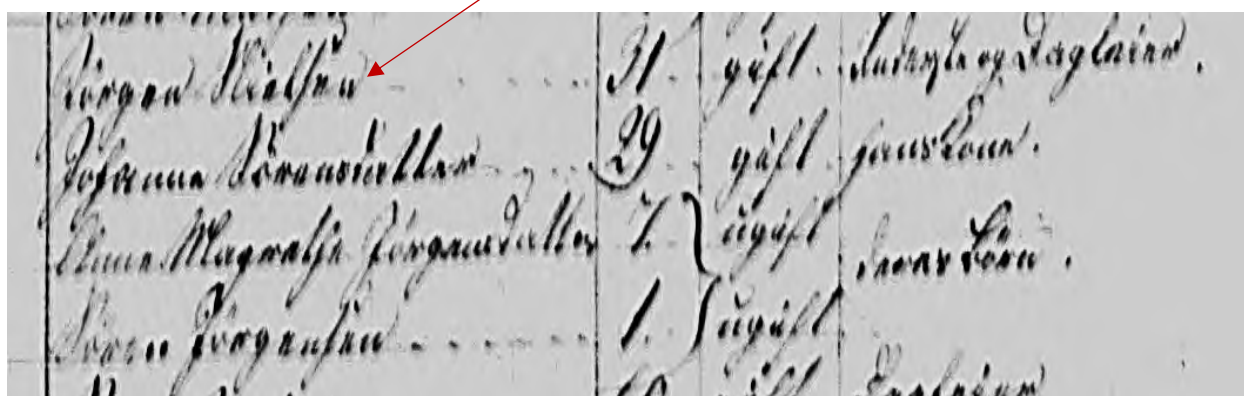 Jörgen Nielsen 31. gift. Inderste og Daglejer.
Johanne Sörensdatter 29 gift hans Kone.
Anne Magrethe Jörgensdatter 7. ugift
deres Börn.
Sören Jörgensen 1. ugift